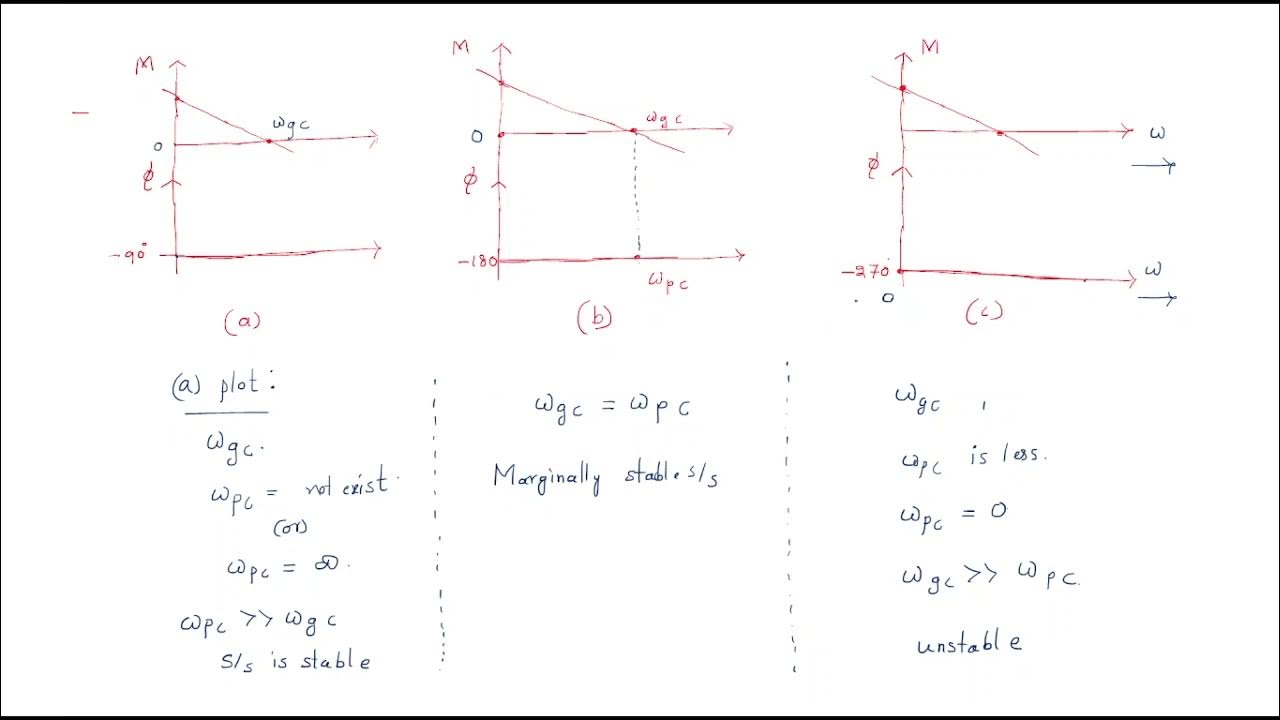 M
ωgc
0
ϕ
-90°
(a)
M
ωgc
0
ϕ
-180
ωpc
(b)
M
ω
ϕ
-270°
ω
0
(c)
(a) plot:
ωgc.
ωpc = not exist.
(or)
ωpc = ∞.
ωpc >> ωgc
s/s is stable
ωgc = ωpc
Marginally stable s/s
ωgc ,
ωpc is less.
ωpc = 0
ωgc >> ωpc.
unstable